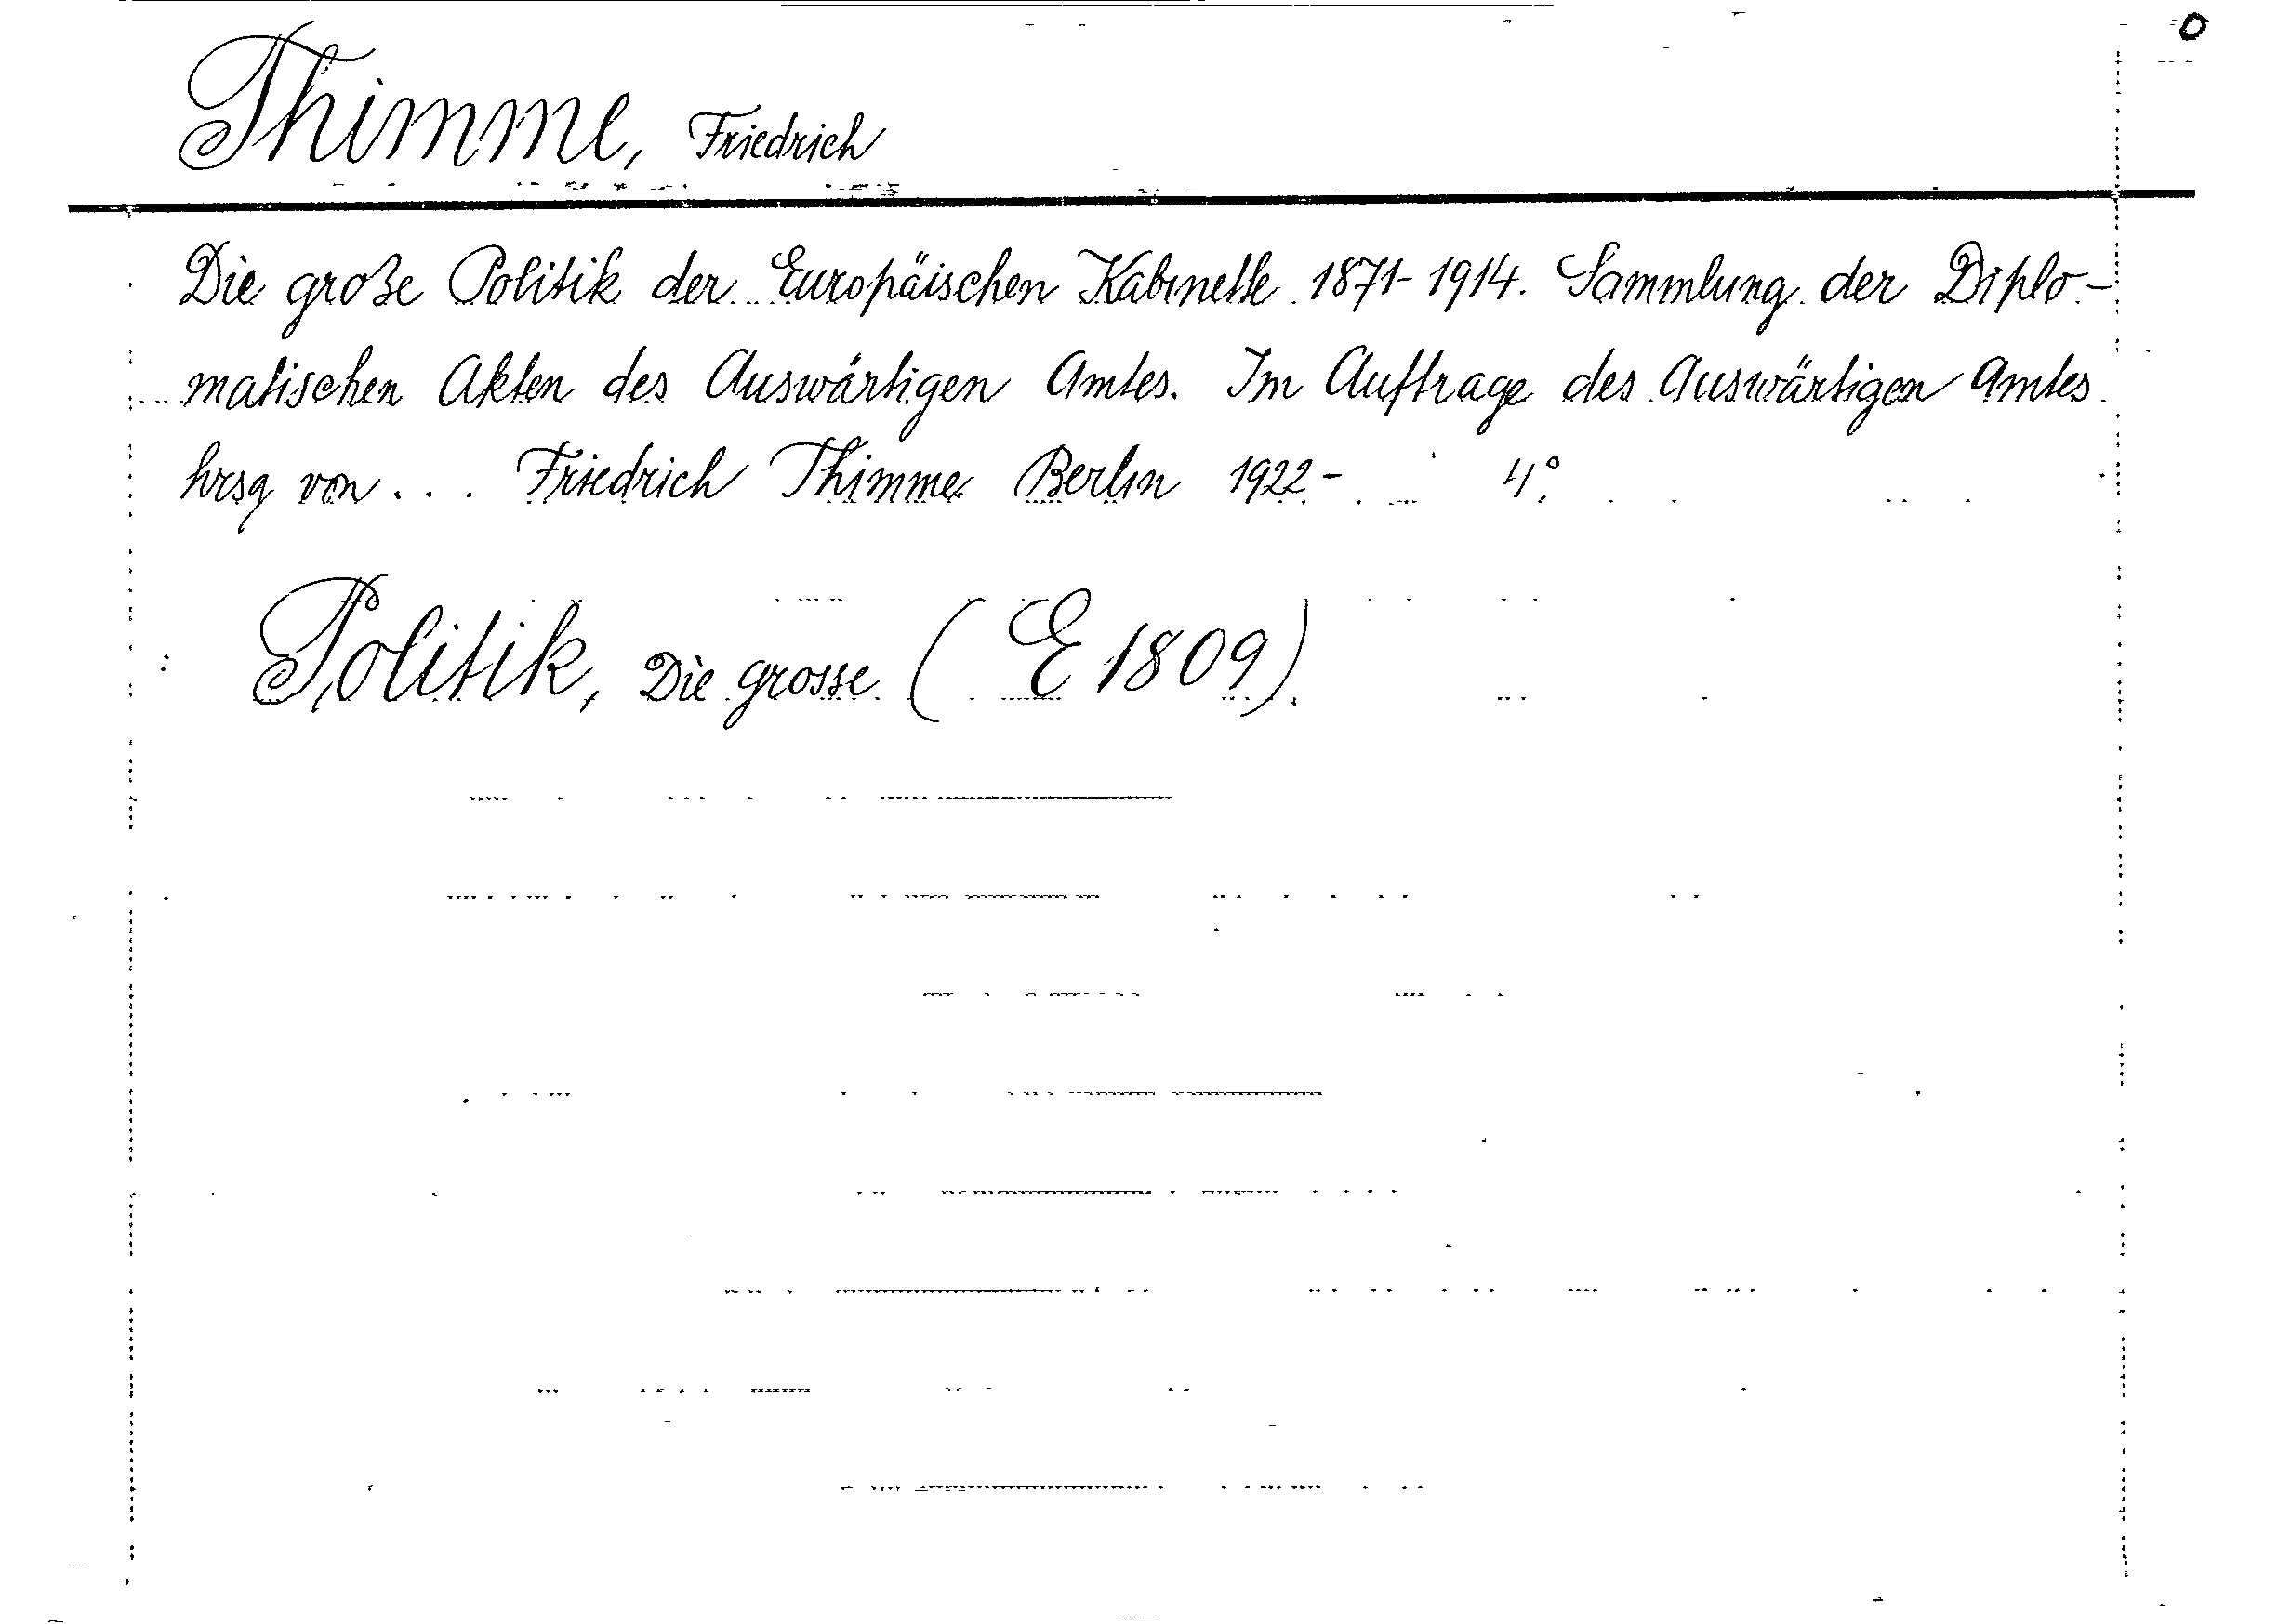 Thimme, Friedrich
Die große Politik der Europäischen Kabinette 1871-1914. Sammlung der Diplo-
matischen Akten des Auswärtigen Amtes. Im Auftrage des Auswärtigen Amtes
hrsg von ... Friedrich Thimme. Berlin 1922- 4°.
Politik, Die grosse (E 1809)